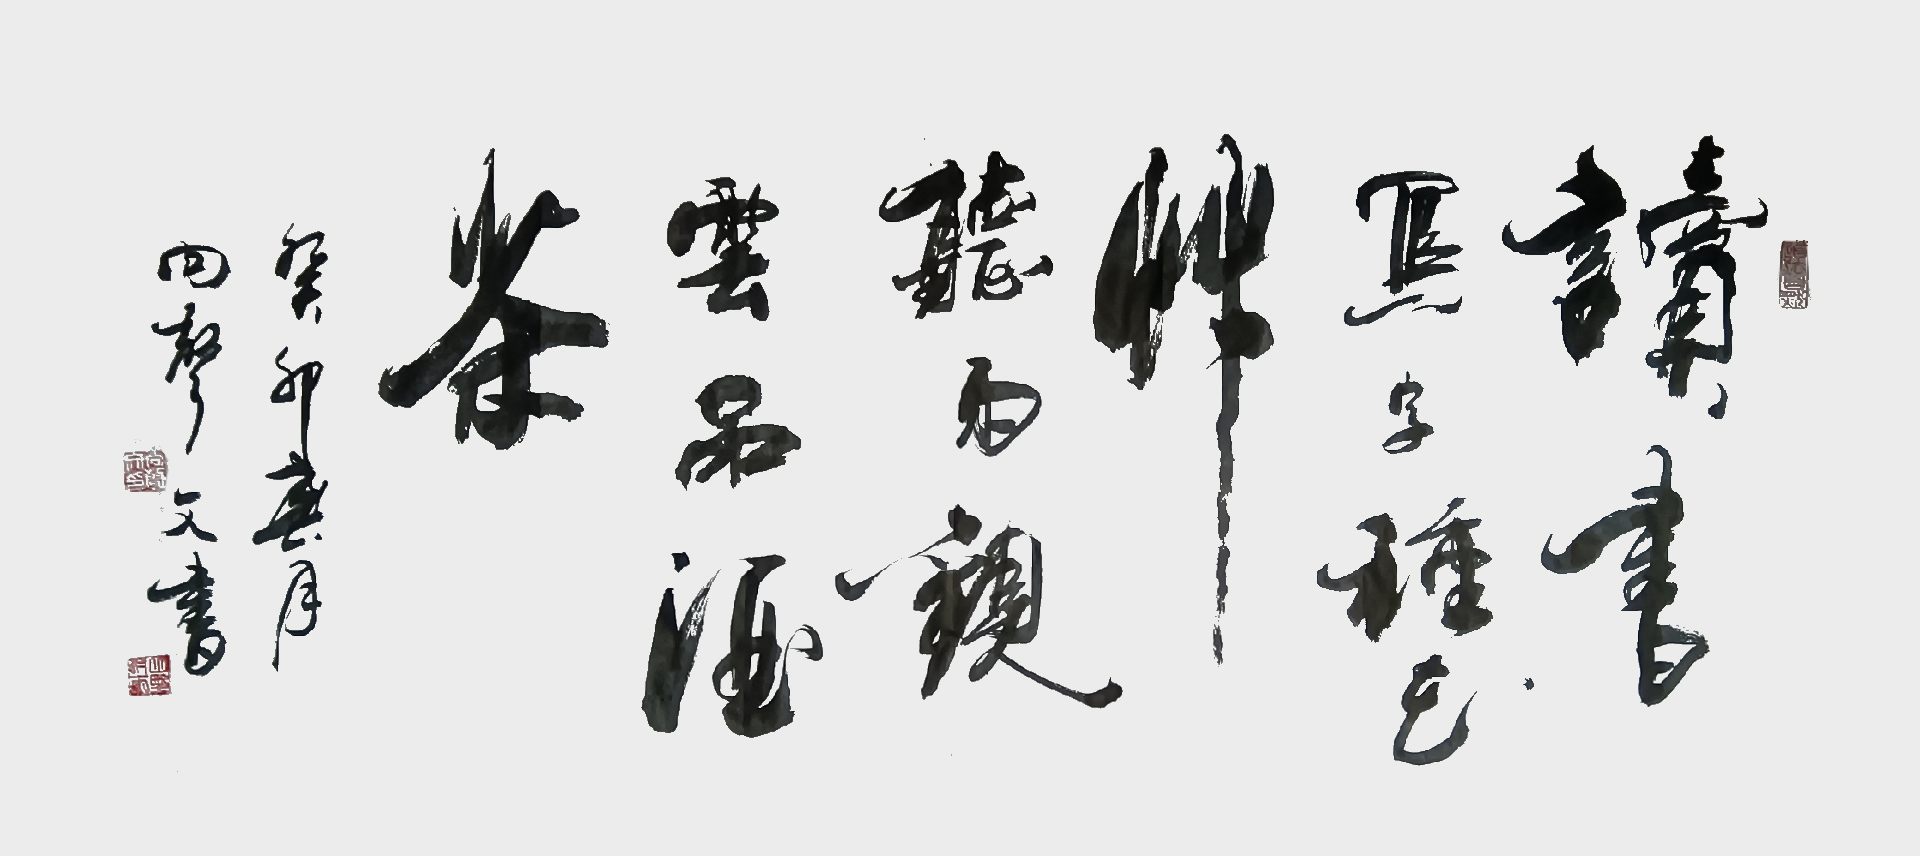 讀書
寫字種花
艸
聽雨觀
雲品酒
茶
癸卯春月
文書